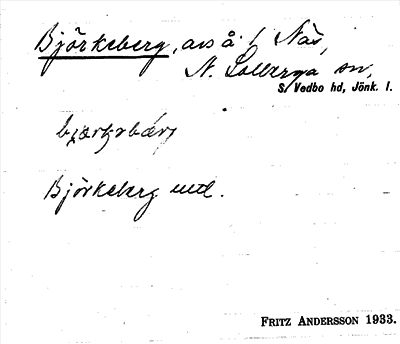 Björkeberg, avs å 1/ Näs,
N. Solberga sn,
S. Vedbo hd, Jönk. l.
Björkeberg utl.
FRITZ ANDERSSON 1933.